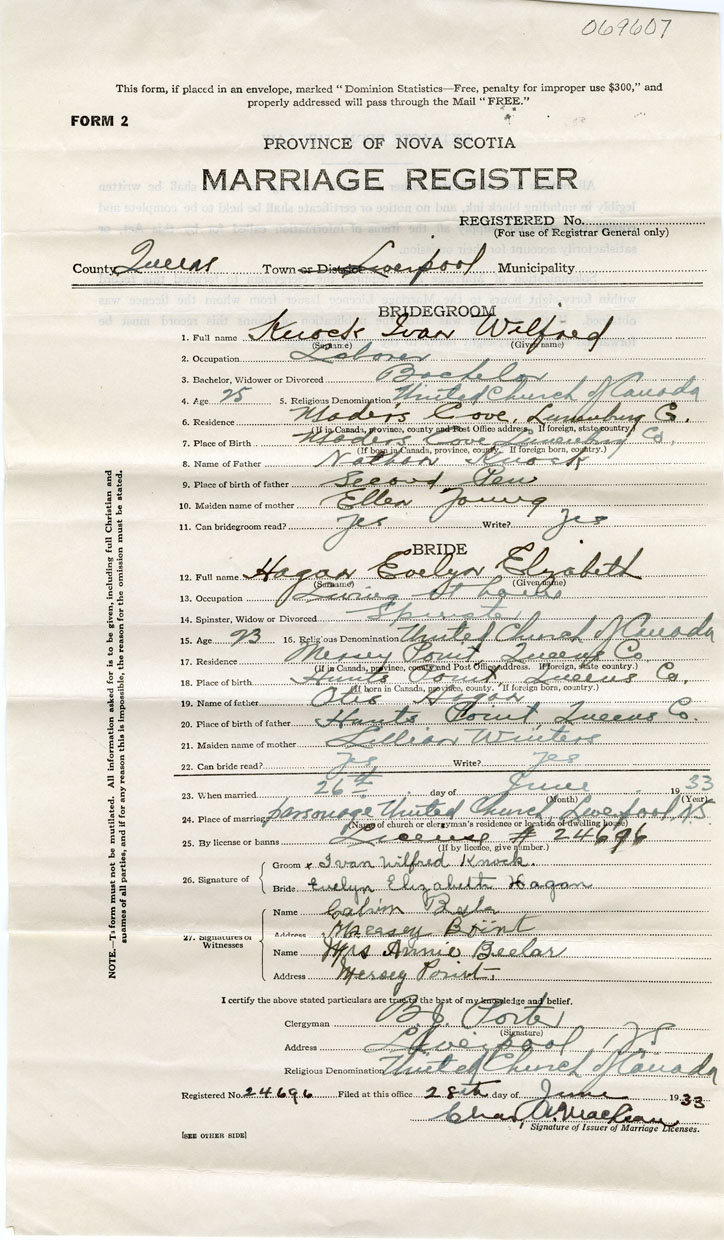 069607
This form, if placed in an envelope, marked "Dominion Statistics—Free, penalty for improper use $300," and
properly addressed will pass through the Mail "FREE."
FORM 2
PROVINCE OF NOVA SCOTIA
MARRIAGE REGISTER
REGISTERED No.
(For use of Registrar General only)
County Queens Town or District Liverpool Municipality
BRIDEGROOM
1. Full name Knock Ivan Wilfred
(Surname) (Given name)
2. Occupation Laborer
3. Bachelor, Widower or Divorced Bachelor
4. Age 25 5. Religious Denomination United Church of Canada
6. Residence Maders Cove, Lunenburg Co.
(If in Canada, province, county and Post Office address. If foreign, state country.)
7. Place of Birth Maders Cove Lunenburg Co.
(If born in Canada, province, county. If foreign born, country.)
8. Name of Father Nathan Knock
9. Place of birth of father Second Pen
10. Maiden name of mother Ellen Young
11. Can bridegroom read? Yes Write? Yes
BRIDE
12. Full name Hagan Evelyn Elizabeth
(Surname) (Given name)
13. Occupation Living at home
14. Spinster, Widow or Divorced Spinster
15. Age 23 16. Religious Denomination United Church of Canada
17. Residence Mersey Point, Queens Co.
(If in Canada, province, county and Post Office address. If foreign, state country.)
18. Place of birth Hunts Point, Queens Co.
(If born in Canada, province, county. If foreign born, country.)
19. Name of father Otis Hagan
20. Place of birth of father Hunts Point, Queens Co.
21. Maiden name of mother Lillian Winters
22. Can bride read? Yes Write? Yes
23. When married 26th day of June 1933
(Month) (Year)
24. Place of marriage parsonage United Church, Liverpool N.S.
(Name of church or clergyman's residence or location of dwelling house)
25. By license or banns License # 24696
(If by licence, give number.)
26. Signature of Groom x Ivan Wilfred Knock.
Bride Evelyn Elizabeth Hagan
27. Signatures of Witnesses
Name
Address Mersey Point
Name Mrs Annie
Address Mersey Point.
I certify the above stated particulars are true to the best of my knowledge and belief.
Clergyman Porter
(Signature)
Address Liverpool, NS
Religious Denomination United Church of Canada
Registered No. 24696 Filed at this office 28th day of June 1933
Signature of Issuer of Marriage Licenses.
[SEE OTHER SIDE]
NOTE.—This form must not be mutilated. All information asked for is to be given, including full Christian and
surnames of all parties, and if for any reason this is impossible, the reason for the omission must be stated.